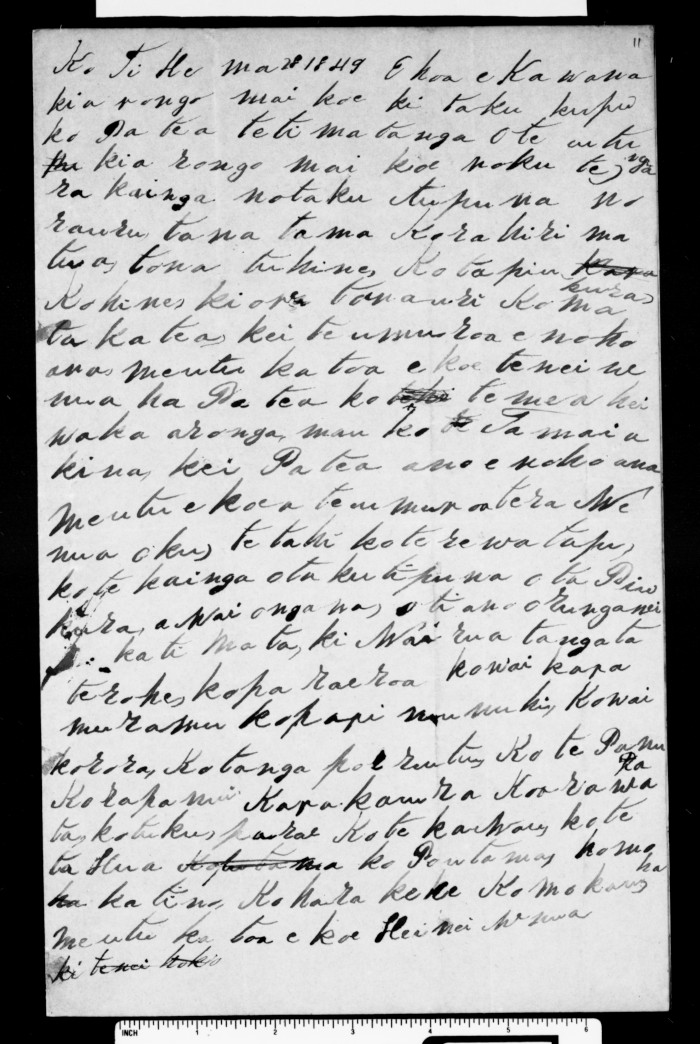 11
Ko Ti He ma 28 1849 E hoa e Kawana
kia rongo mai koe ki taku kupu
ko Patea te timatanga O te utu
kia rongo mai koe noku te nga
ra kainga no taku tupuna no
rauru, tana tama Korahiri ma
tua, tona tuhine, Kotapiu
kura
Kohine, kiore tona uri Koma
ta katea, kei te umuroa e noho
ana, me utu ka toa e koe tenei we
nua ha Patea ko te mea hei
waka aronga, mau ko Tamai a
kina, kei Patea ano e noho ana
Me utu e koe a te umuroa tera We
nua oku, te tahi ko te rewa tapu,
ko te kainga o taku tipuna o ta Piu
kura, a Wai onga na, o ti ano o runga nei
kati Mata, ki Wai rua tangata
te rohe, ko pa rae roa kowai kapa
muramu ko papi mumuhi, Kowai
korora, Kotanga poe rutu, Ko te Panu
Pa
Korapanui Kapakaura Koarawa
ta, kotuku, paraе Kote kawau, kote
ta Hua ko Poutama, komo
ha
ka tino, Kohara keke Ko mokau,
me utu ka toa e koe Hei nei Wenua
ki tenei hoki
INCH 1 2 3 4 5 6